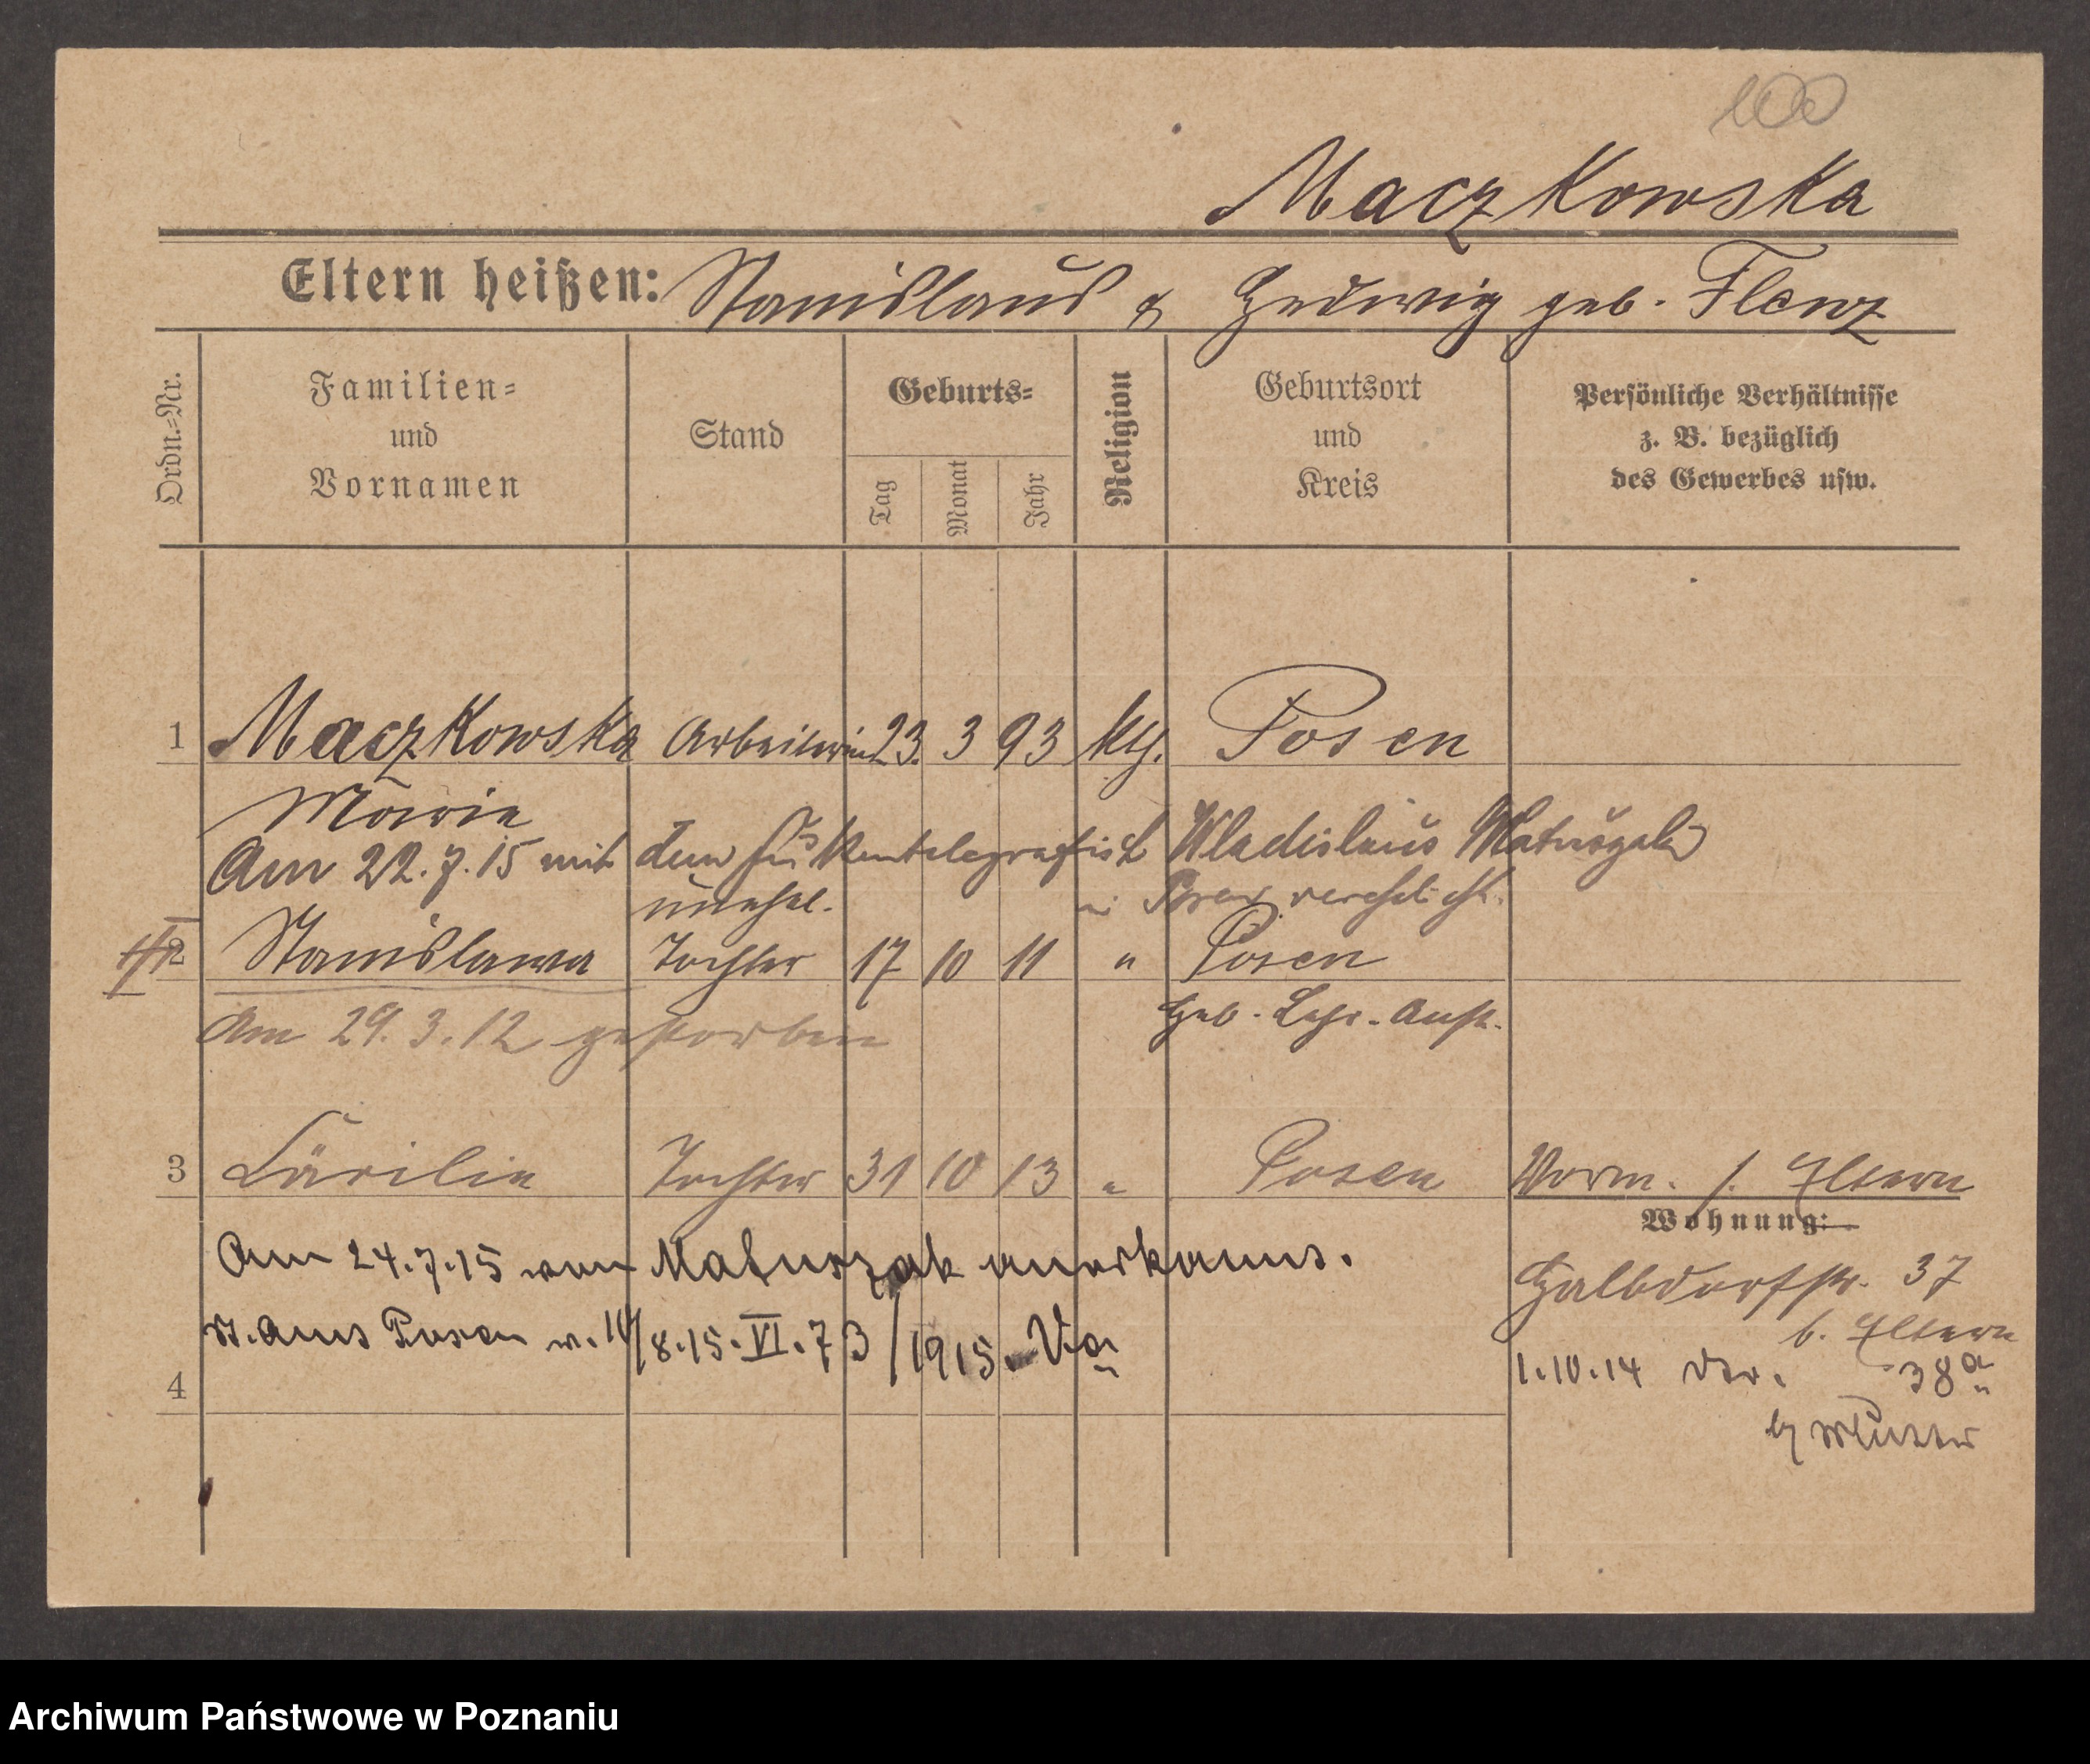 100
Maczkowska
Eltern heißen: Stanislaus & Hedwig geb. Flenz
Ordn.=Nr.
Familien=
und
Vornamen
Stand
Geburts=
Tag
Monat
Jahr
Religion
Geburtsort
und
Kreis
Persönliche Verhältnisse
z. B. bezüglich
des Gewerbes usw.
1 Maczkowska Arbeiterin 23. 3 93 kth. Posen
Maria
Am 22.7.15 mit dem Funkentelegrafist Wladislaus
in Posen verehelicht.
unehel.
2 Stanislawa Tochter 17 10 11 " Posen
Heb. Lehr. Anst.
Am 29.3.12 gestorben
3 Cäcilie Tochter 31 10 13 " Posen Vorm. s. Eltern
Wohnung:
Am 24.7.15 von Matuszak anerkannt.
St. Amt Posen v. 10/8.15. VI. 73/1915.
Halbdorfstr. 37
b. Eltern
1.10.14 38a
b/ Mutter
4
Archiwum Państwowe w Poznaniu